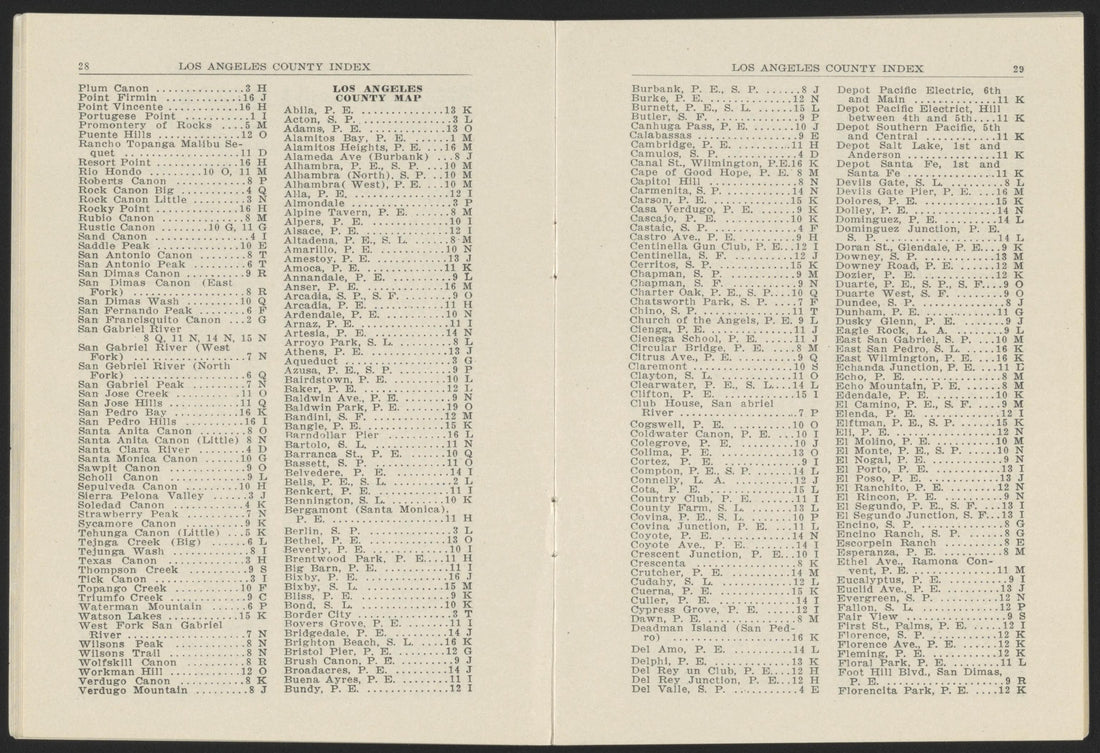 28
LOS ANGELES COUNTY INDEX
Plum Canon ...............3 H
Point Firmin .............16 J
Point Vincente .............16 H
Portugese Point ...........1 I
Promontery of Rocks ....5 M
Puente Hills ..............12 O
Rancho Topanga Malibu Se-
quet ....................11 D
Resort Point ..............16 H
Rio Hondo .........10 O, 11 M
Roberts Canon ............8 P
Rock Canon Big ...........4 Q
Rock Canon Little .........3 N
Rocky Point ..............16 H
Rubio Canon ..............8 M
Rustic Canon .......10 G, 11 G
Sand Canon ...............4 I
Saddle Peak ..............10 E
San Antonio Canon ........8 T
San Antonio Peak .........6 T
San Dimas Canon ..........9 R
San Dimas Canon (East
Fork) ...................8 R
San Dimas Wash ..........10 Q
San Fernando Peak ........6 F
San Francisquito Canon ...2 G
San Gabriel River
8 Q, 11 N, 14 N, 15 N
San Gabriel River (West
Fork) ...................7 N
San Gebriel River (North
Fork) ...................6 Q
San Gabriel Peak ..........7 N
San Jose Creek ...........11 O
San Jose Hills ............11 Q
San Pedro Bay ............16 K
San Pedro Hills ...........16 I
Santa Anita Canon ........8 O
Santa Anita Canon (Little) 8 N
Santa Clara River .........4 D
Santa Monica Canon ......10 G
Sawpit Canon .............9 O
Scholl Canon ..............9 L
Sepulveda Canon .........10 H
Sierra Pelona Valley ......3 J
Soledad Canon ............4 K
Strawberry Peak ..........7 N
Sycamore Canon ..........9 K
Tehunga Canon (Little) ...5 K
Tejnga Creek (Big) .......6 L
Tejunga Wash ............8 I
Texas Canon ..............3 H
Thompson Creek ..........9 S
Tick Canon ................3 I
Topango Creek ...........10 F
Triumfo Creek ............9 C
Waterman Mountain ......6 P
Watson Lakes ............15 K
West Fork San Gabriel
River ...................7 N
Wilsons Peak .............8 N
Wilsons Trail .............8 N
Wolfskill Canon ...........8 R
Workman Hill ............12 O
Verdugo Canon ...........8 K
Verdugo Mountain ........8 J
LOS ANGELES
COUNTY MAP
Abila, P. E. ...............13 K
Acton, S. P. ...............3 L
Adams, P. E. ..............13 O
Alamitos Bay, P. E. .......1 M
Alamitos Heights, P. E. ...16 M
Alameda Ave (Burbank) ...8 J
Alhambra, P. E., S. P. ....10 M
Alhambra (North). S. P. ...10 M
Alhambra( West), P. E. ...10 M
Alla, P. E. ................12 I
Almondale ................3 P
Alpine Tavern, P. E. .......8 M
Alpers, P. E. ..............10 I
Alsace, P. E. ..............12 I
Altadena, P. E., S. L. ......8 M
Amarillo, P. E. ............10 N
Amestoy, P. E. ............13 J
Amoca, P. E. .............11 K
Annandale, P. E. ..........9 L
Anser, P. E. ..............16 M
Arcadia, S. P., S. F. .......9 O
Arcadia, P. E. .............11 H
Ardendale, P. E. ..........10 N
Arnaz, P. E. ..............11 I
Artesia, P. E. .............14 N
Arroyo Park, S. L. .........8 L
Athens, P. E. .............13 J
Aqueduct .................3 G
Azusa, P. E., S. P. ........9 P
Bairdstown, P. E. .........10 L
Baker, P. E. ..............12 L
Baldwin Ave., P. E. .......9 N
Baldwin Park, P. E. .......19 O
Bandini, S. F. .............12 M
Bangle, P. E. .............15 K
Barndollar Pier ...........16 L
Bartolo, S. L. .............11 N
Barranca St., P. E. ........10 Q
Bassett, S. P. .............11 O
Belvedere, P. E. ..........14 I
Bells, P. E., S. L. ..........2 L
Benkert, P. E. ............11 I
Bennington, S. L. .........10 K
Bergamont (Santa Monica),
P. E. ...................11 H
Berlin, S. P. ...............3 L
Bethel, P. E. ..............13 O
Beverly, P. E. .............10 I
Brentwood Park, P. E....11 H
Big Barn, P. E. ............11 I
Bixby, P. E. ...............16 J
Bixby, S. L. ...............15 M
Bliss, P. E. ................9 K
Bond, S. L. ...............10 K
Border City ...............3 T
Bovers Grove, P. E. .......11 I
Bridgedale, P. E. ..........14 J
Brighton Beach, S. L. .....16 K
Bristol Pier, P. E. .........12 G
Brush Canon, P. E. ........9 J
Broadacres, P. E. .........14 J
Buena Ayres, P. E. ........11 I
Bundy, P. E. ..............12 I
LOS ANGELES COUNTY INDEX
29
Burbank, P. E., S. P. ......8 J
Burke, P. E. ..............12 N
Burnett, P. E., S. L. ......15 L
Butler, S. F. ...............9 P
Canhuga Pass, P. E. ......10 J
Calabassas ................9 E
Cambridge, P. E. .........11 H
Camulos, S. P. ............4 D
Canal St., Wilmington, P.E.16 K
Cape of Good Hope, P. E. 8 M
Capitol Hill ...............8 N
Carmenita, S. P. ..........14 N
Carson, P. E. .............15 K
Casa Verdugo, P. E. .......9 K
Cascajo, P. E. .............10 K
Castaic, S. P. ..............4 F
Castro Ave., P. E. .........9 H
Centinella Gun Club, P. E...12 I
Centinella, S. F. ..........12 J
Cerritos, S. P. ............15 K
Chapman, S. P. ...........9 M
Chapman, S. F. ...........9 N
Charter Oak, P. E., S. P....10 Q
Chatsworth Park, S. P. ....7 F
Chino, S. P. ..............11 T
Church of the Angels, P. E. 9 L
Cienga, P. E. .............11 J
Cienega School, P. E. .....11 J
Circular Bridge, P. E. .....8 M
Citrus Ave., P. E. .........9 Q
Claremont ...............10 S
Clayton, S. L. ............11 O
Clearwater, P. E., S. L....14 L
Clifton, P. E. .............15 I
Club House, San abriel
River ...................7 P
Cogswell, P. E. ...........10 O
Coldwater Canon, P. E. ...10 I
Colegrove, P. E. ..........10 J
Colima, P. E. .............13 O
Cortez, P. E. ..............9 I
Compton, P. E., S. P. .....14 L
Connelly, L. A. ...........12 J
Cota, P. E. ...............15 L
Country Club, P. E. .......11 I
County Farm, S. L. .......13 L
Covina, P. E., S. L. .......10 P
Covina Junction, P. E. ....11 L
Coyote, P. E. .............14 N
Coyote Ave., P. E. ........14 I
Crescent Junction, P. E...10 I
Crescenta .................8 K
Crutcher, P. E. ...........14 M
Cudahy, S. L. ............12 L
Cuerna, P. E. ............15 K
Culler, P. E. ..............14 I
Cypress Grove, P. E. ......12 I
Dawn, P. E. ...............8 M
Deadman Island (San Ped-
ro) .....................16 K
Del Amo, P. E. ............14 L
Delphi, P. E. .............13 K
Del Rey un Club, P. E....12 H
Del Rey Junction, P. E...12 H
Del Valle, S. P. ............4 E
Depot Pacific Electric, 6th
and Main ...............11 K
Depot Pacific Electrict, Hill
between 4th and 5th....11 K
Depot Southern Pacific, 5th
and Central .............11 K
Depot Salt Lake, 1st and
Anderson ...............11 K
Depot Santa Fe, 1st and
Santa Fe ................11 K
Devils Gate, S. L. .........8 L
Devils Gate Pier, P. E. ...16 M
Dolores, P. E. .............15 K
Dolley, P. E. ..............14 N
Dominguez, P. E. .........14 L
Dominguez Junction, P. E.
S. P. ...................14 L
Doran St., Glendale, P. E...9 K
Downey, S. P. ............13 M
Downey Road, P. E. ......12 M
Dozier, P. E. .............12 K
Duarte, P. E., S. P., S. F...9 O
Duarte West, S. F. ........9 O
Dundee, S. P. .............8 J
Dunham, P. E. ...........11 G
Dusky Glenn, P. E. .......9 J
Eagle Rock, L. A. .........9 L
East San Gabriel, S. P. ...10 M
East San Pedro, S. L. .....16 K
East Wilmington, P. E. ...16 K
Echanda Junction, P. E. ...11 L
Echo, P. E. ...............8 M
Echo Mountain, P. E. .....8 M
Edendale, P. E. ...........10 K
El Camino, P. E., S. F. ....9 M
Elenda, P. E. .............12 I
Elftman, P. E., S. P. ......15 K
Eli, P. E. .................12 N
El Molino, P. E. ..........10 M
El Monte, P. E., S. P. .....10 N
El Nogal, P. E. ............9 N
El Porto, P. E. ............13 I
El Poso, P. E. .............13 J
El Ranchito, P. E. ........12 N
El Rincon, P. E. ...........9 N
El Segundo, P. E., S. F. ...13 I
El Segundo Junction, S. F...13 I
Encino, S. P. ..............8 G
Encino Ranch, S. P. ......8 G
Escorpein Ranch .........8 E
Esperanza, P. E. ..........8 M
Ethel Ave., Ramona Con-
vent, P. E. ..............11 M
Eucalyptus, P. E. .........9 I
Euclid Ave., P. E. .........13 J
Evergreen, S. P. ..........12 N
Fallon, S. L. ..............12 P
Fair View .................9 S
First St., Palms, P. E. .....12 I
Florence, S. P. ............12 K
Florence Ave., P. E. ......12 K
Fleming, P. E. ............12 K
Floral Park, P. E. .........11 L
Foot Hill Blvd., San Dimas,
P. E. ...................9 R
Florencita Park, P. E. ....12 K